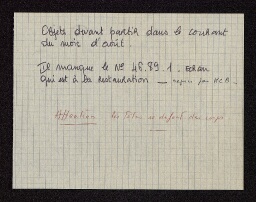 Objets devant partir dans le courant
du mois d'août.
Il manque le N° 46.89.1. écran
qui est à la restauration — repris par M.C.B.
Attention les têtes se défont des corps